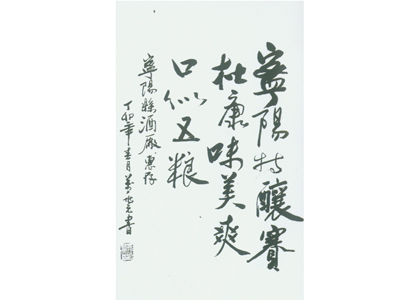 寧陽特釀賽
杜康味美爽
口似五粮
寧陽縣酒廠惠存
丁卯年春月書